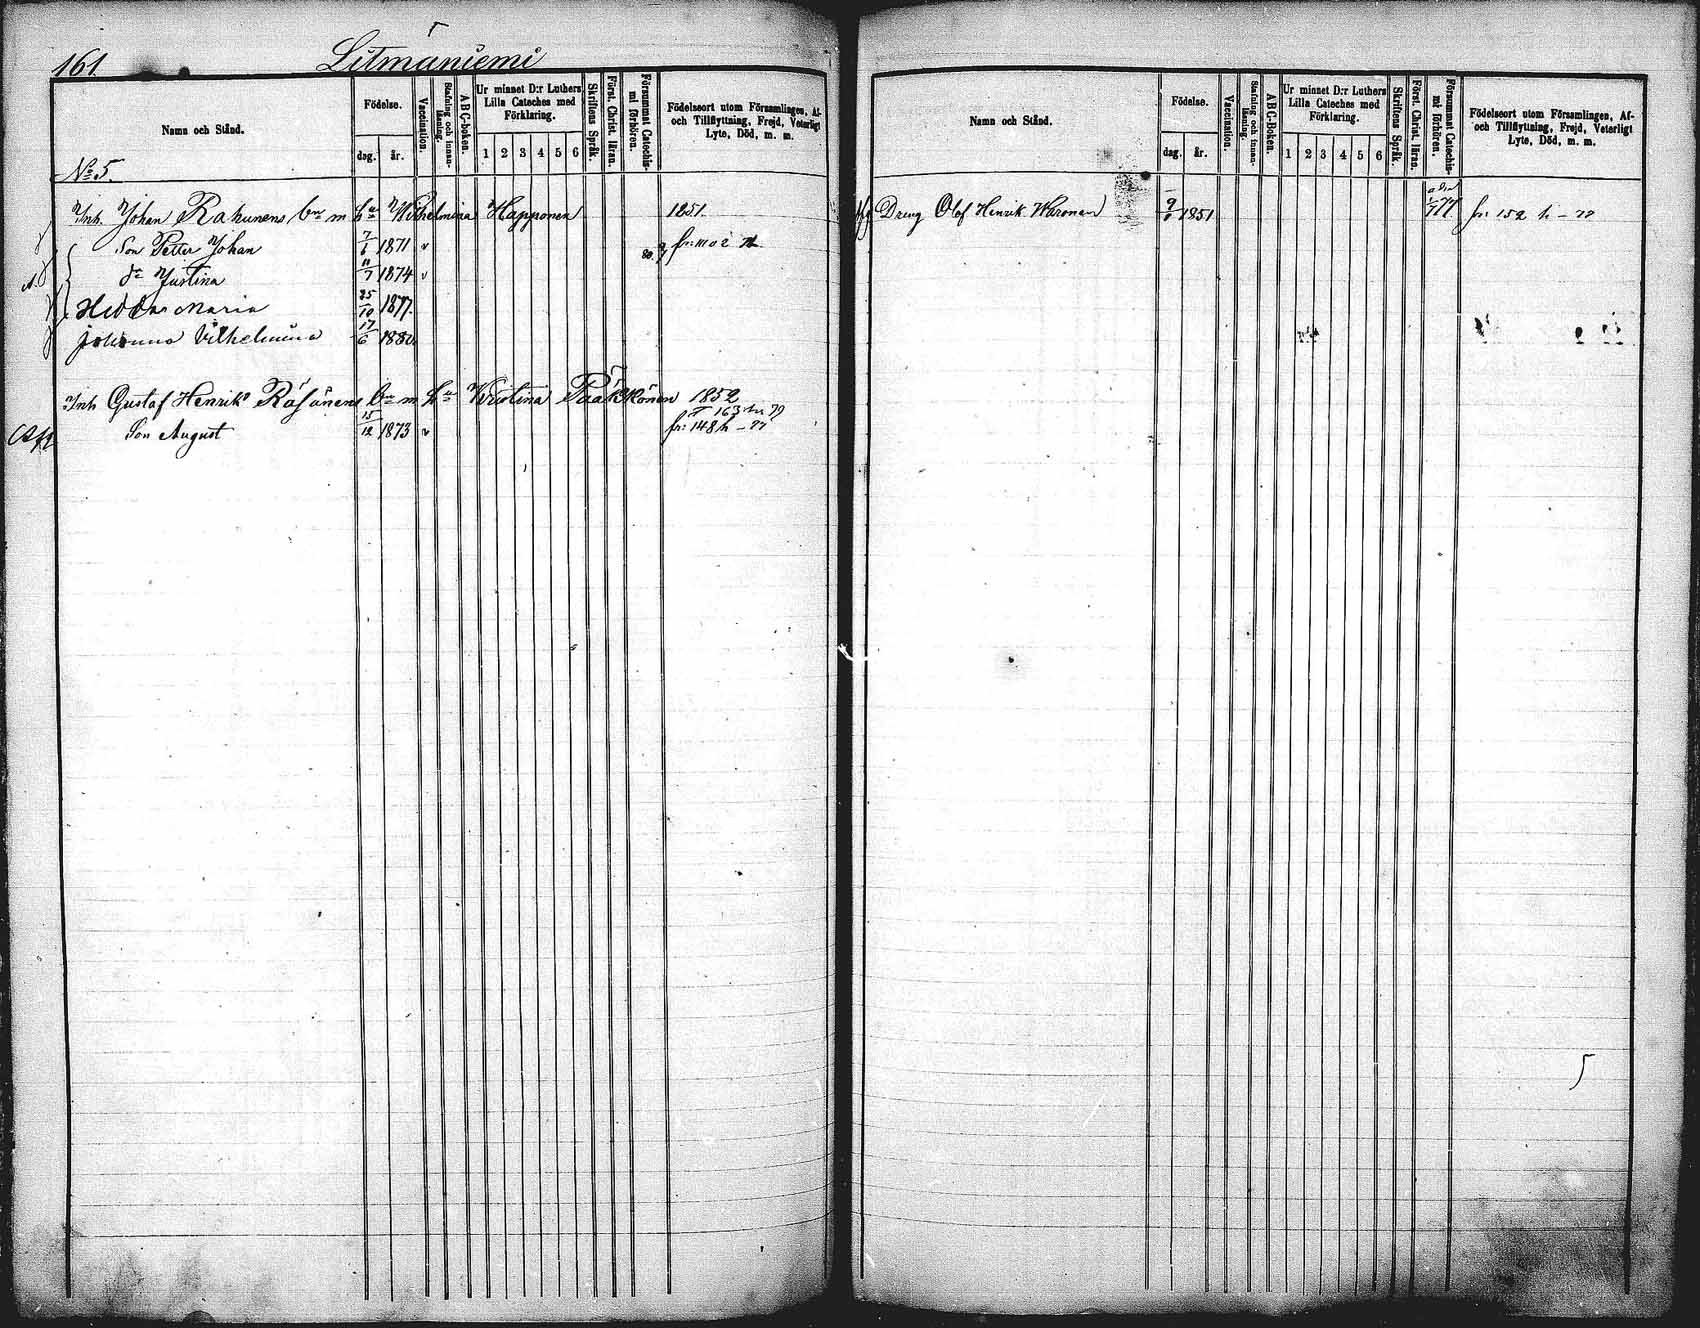 161 Litmaniemi
Namn och Stånd.
Födelse.
dag. år.
Vaccination.
Stafning och innanläsning.
ABC-boken.
Ur minnet D:r Luthers
Lilla Cateches med
Förklaring.
1 2 3 4 5 6
Skriftens Språk.
Först. Christ. läran.
Försummat Catechismi förhören.
Födelseort utom Församlingen, Af-
och Tillflyttning, Frejd, Veterligt
Lyte, Död, m. m.
No 5.
Inh. Johan Rahunens bn m hu Wilhelmina Happonen 1851.
Son Petter Johan 7/6 1871 v
dr Justina 11/7 1874 v
Hedda Maria 25/10 1877.
Johanna Vilhelmina 17/6 1880
Inh Gustaf Henrik Räsänens bn m hu Kristina Pääkkönen 1852
T 163 79
Son August 15/12 1873 v fr: 148 h - 77
Namn och Stånd.
Födelse.
dag. år.
Vaccination.
Stafning och innanläsning.
ABC-Boken.
Ur minnet D:r Luthers
Lilla Cateches med
Förklaring.
1 2 3 4 5 6
Skriftens Språk.
Först. Christ. läran.
Försummat Catechismi förhören.
Födelseort utom Församlingen, Af-
och Tillflyttning, Frejd, Veterligt
Lyte, Död, m. m.
Dreng Olof Henrik Waronen 1851 77 fr: 152 h - 77